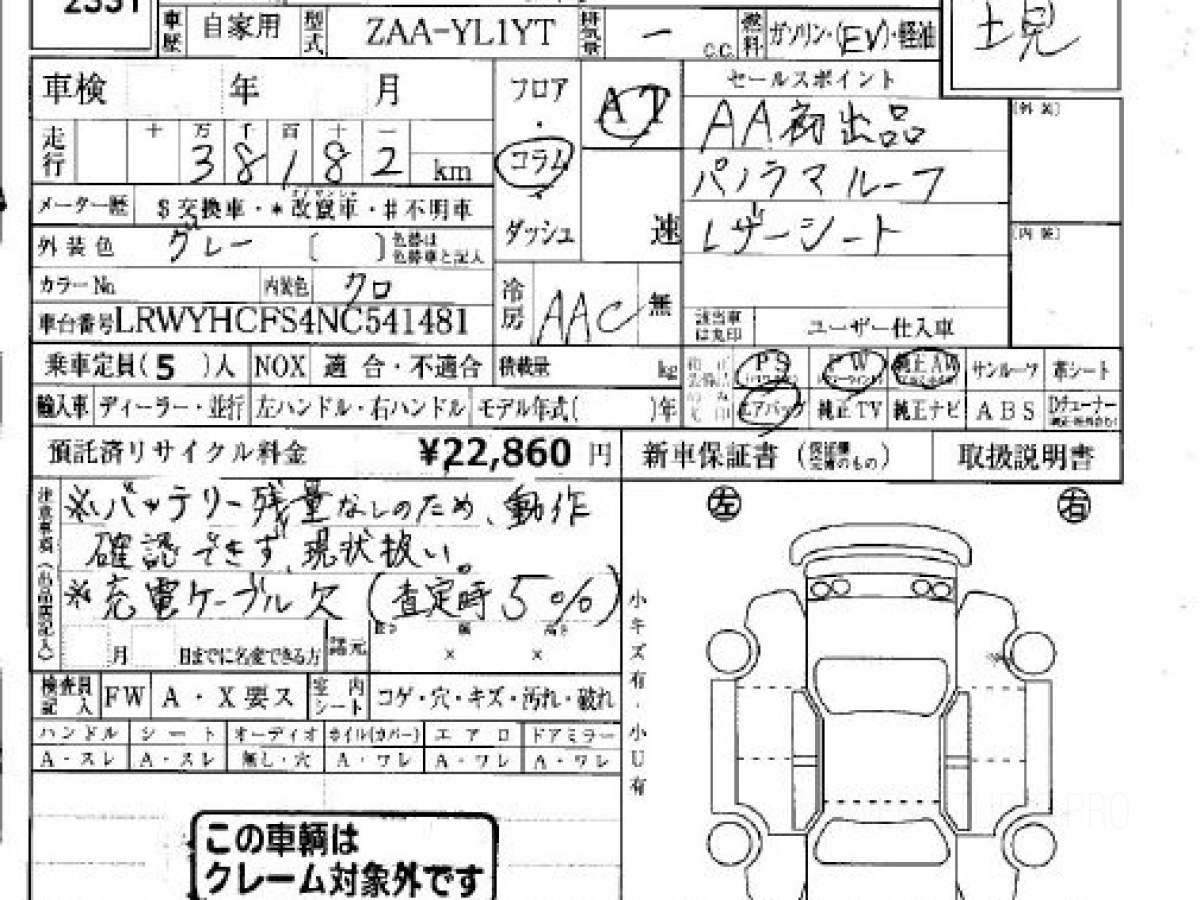 2331
車歴 自家用 型式 ZAA-YL1YT 排気量 - C.C. 燃料 ガソリン・(EV)・軽油
土境
車検 年 月 フロア AT セールスポイント
・
コラム
・
ダッシュ 速
AA初出品
パノラマルーフ
レザーシート
[外装]
[内装]
走行 十 万 千 百 十 一
3 8 1 8 2 km
メーター歴 $交換車・*改竄車・#不明車
外装色 グレー [ ] 色替は色替車と記入
カラーNo. 内装色 クロ 冷房 AAC 無
車台番号 LRWYHCFS4NC541481 該当車は丸印 ユーザー仕入車
乗車定員(5)人 NOX 適合・不適合 積載量 kg PS PW 純正AW サンルーフ 革シート
輸入車 ディーラー・並行 左ハンドル・右ハンドル モデル年式( )年 エアバック 純正TV 純正ナビ ABS Dチューナー
預託済リサイクル料金 ¥22,860 円 新車保証書 取扱説明書
注意事項(出品店記入)
※バッテリー残量なしのため、動作
確認できず、現状扱い。
※充電ケーブル欠(査定時5%)
月 日までに名変できる方 諸元 長さ 幅 高さ
× ×
左 右
小キズ有・小U有
検査員記入 FW A・X要ス 室内シート コゲ・穴・キズ・汚れ・破れ
ハンドル シート オーディオ ホイル(カバー) エアロ ドアミラー
A・スレ A・スレ 無し・穴 A・ワレ A・ワレ A・ワレ
この車輌は
クレーム対象外です